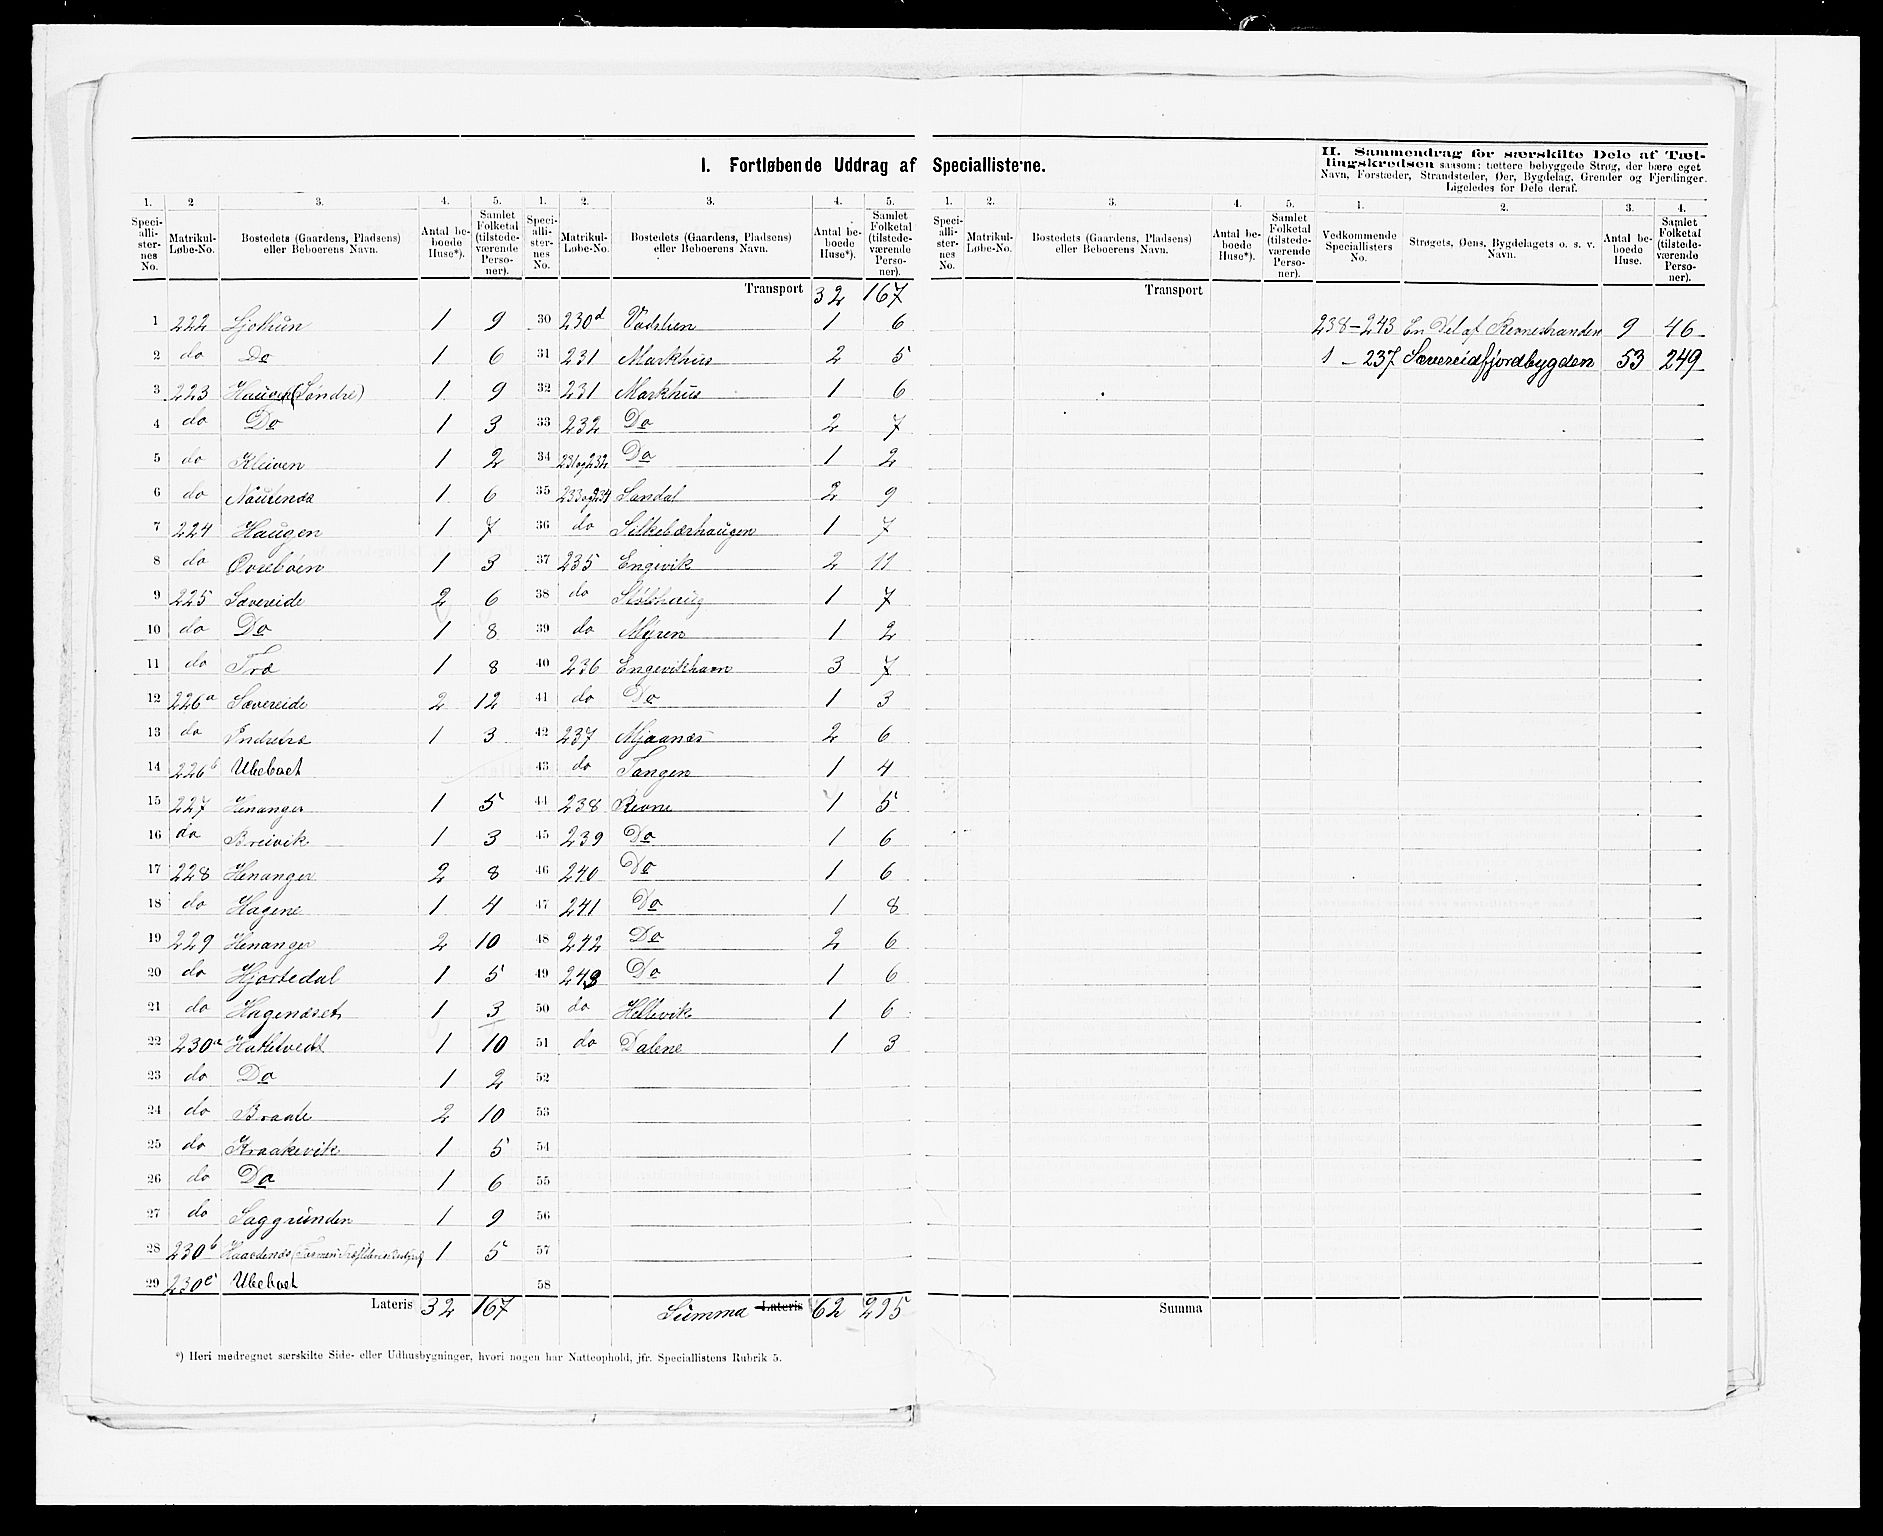 I. Fortløbende Uddrag af Speciallisterne.
II. Sammendrag for særskilte Dele af Tæl-
lingskredsen saasom: tættere bebyggede Strøg, der bære eget
Navn, Forstæder, Strandsteder, Øer, Bygdelag, Grender og Fjerdinger.
Ligeledes for Dele deraf.
1. 2 3. 4. 5. 1. 2. 3. 4. 5. 1. 2. 3. 4. 5. 1. 2. 3. 4.
Speciallisternes No. Matrikul-Løbe-No. Bostedets (Gaardens, Pladsens) eller Beboerens Navn. Antal beboede Huse*). Samlet Folketal (tilstedeværende Personer).
Speciallisternes No. Matrikul-Løbe-No. Bostedets (Gaardens, Pladsens) eller Beboerens Navn. Antal beboede Huse*). Samlet Folketal (tilstedeværende Personer).
Speciallisternes No. Matrikul-Løbe-No. Bostedets (Gaardens, Pladsens) eller Beboerens Navn. Antal beboede Huse*). Samlet Folketal (tilstedeværende Personer).
Vedkommende Speciallisters No. Strøgets, Øens, Bygdelagets o. s. v. Navn. Antal beboede Huse. Samlet Folketal (tilstedeværende Personer).
1 222 Ljothun 1 9
2 do Do 1 6
3 223 Haugen (Søndre) 1 9
4 do Do 1 3
5 do Kleiven 1 2
6 do Nautenæs 1 6
7 224 Haugen 1 7
8 do Øvrebøen 1 3
9 225 Sævereide 2 6
10 do Do 1 8
11 do Træ 1 8
12 226a Sævereide 2 12
13 do Endretræ 1 3
14 226b Ubeboet
15 227 Henanger 1 5
16 do Breivik 1 3
17 228 Henanger 2 8
18 do Hagene 1 4
19 229 Henanger 2 10
20 do Hjortedal 1 5
21 do Hagenæset 1 3
22 230a Hatletvedt 1 10
23 do Do 1 2
24 do Braate 2 10
25 do Kraakevik 1 5
26 do Do 1 6
27 do Saggrunden 1 9
28 230b Haardenæs 1 5
29 230c Ubeboet
Lateris 32 167
Transport 32 167
30 230d Vadslien 1 6
31 231 Markhus 2 5
32 231 Markhus 1 6
33 232 Do 2 7
34 231og232 Do 1 2
35 233og234 Sandal 2 9
36 do Silkebærhaugen 1 7
37 235 Engevik 2 11
38 do Stølshaug 1 7
39 do Myren 1 2
40 236 Engevikhavn 3 7
41 do Do 1 3
42 237 Mjaanæs 2 6
43 do Tangen 1 4
44 238 Revne 1 5
45 239 Do 1 6
46 240 Do 1 6
47 241 Do 1 8
48 242 Do 2 6
49 243 Do 1 6
50 do Hellevik 1 6
51 do Dalene 1 3
52
53
54
55
56
57
58
Summa Lateris 62 295
Transport
Summa
238-243 En Del af Revnestranden 9 46
1 - 237 Sævereidfjordbygden 53 249
*) Heri medregnet særskilte Side- eller Udhusbygninger, hvori nogen har Natteophold, jfr. Speciallistens Rubrik 5.